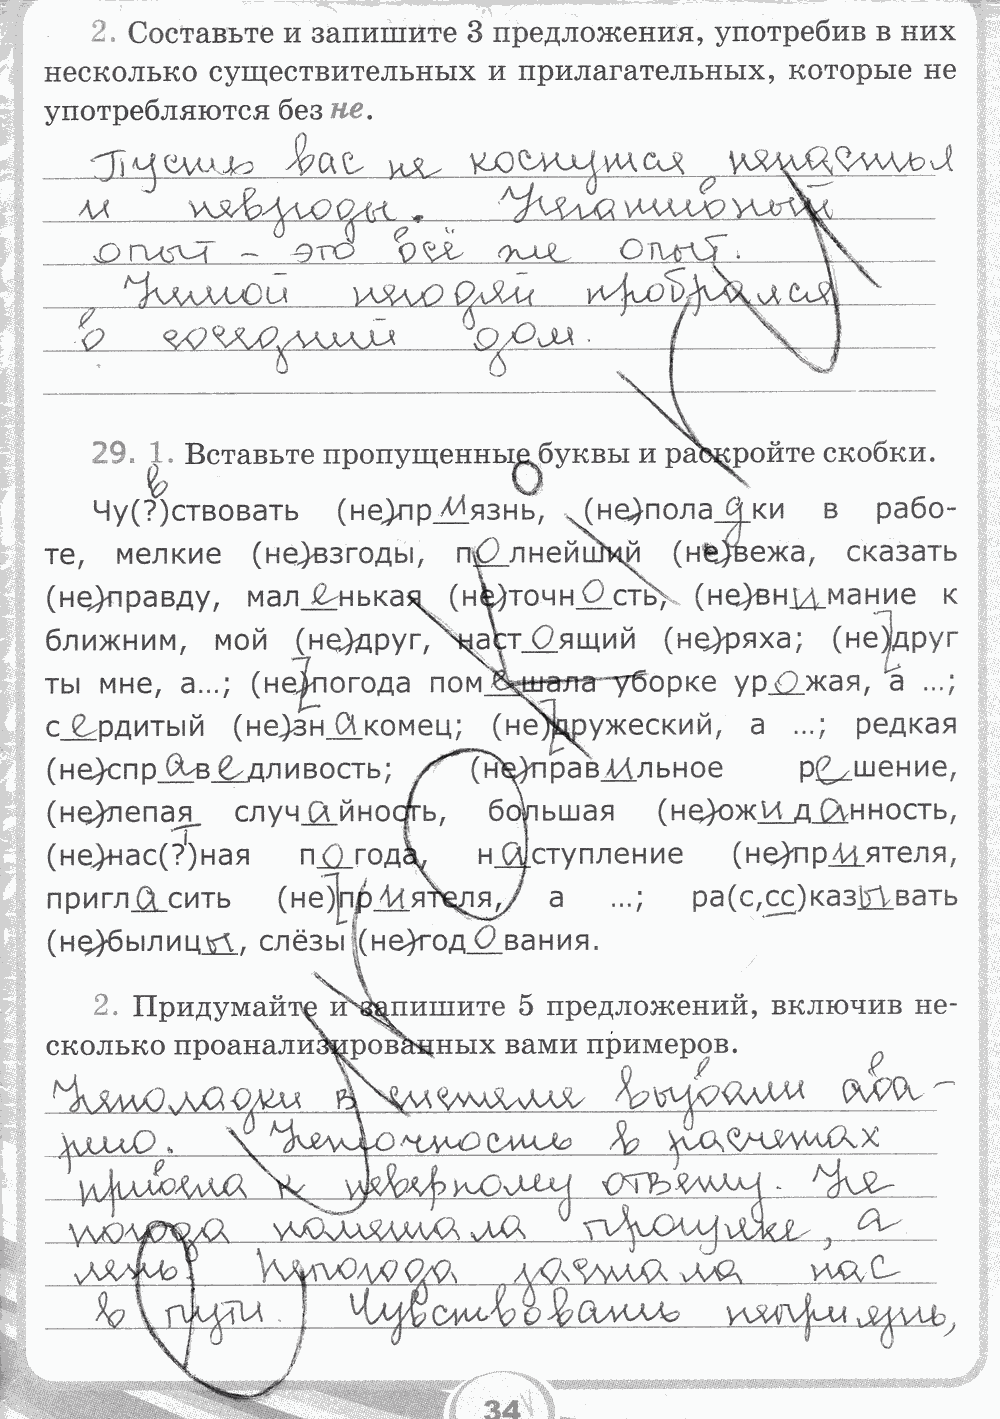 2. Составьте и запишите 3 предложения, употребив в них
несколько существительных и прилагательных, которые не
употребляются без не.
Пусть вас не коснутся ненастья
и невзгоды. Негативный
опыт – это всё же опыт.
Немой негодяй пробрался
в соседний дом.
29. 1. Вставьте пропущенные буквы и раскройте скобки.
Чу(?)ствовать (не)приязнь, (не)поладки в рабо-
в
те, мелкие (не)взгоды, полнейший (не)вежа, сказать
(не)правду, маленькая (не)точность, (не)внимание к
ближним, мой (не)друг, настоящий (не)ряха; (не)друг
ты мне, а...; (не)погода помешала уборке урожая, а ...;
сердитый (не)знакомец; (не)дружеский, а ...; редкая
(не)справедливость; (не)правильное решение,
(не)лепая случайность, большая (не)ожиданность,
(не)нас(?)ная погода, наступление (не)приятеля,
т
пригласить (не)приятеля, а ...; ра(с,сс)казывать
(не)былицы, слёзы (не)годования.
2. Придумайте и запишите 5 предложений, включив не-
сколько проанализированных вами примеров.
Неполадки в системе вызвали ава-
рию. Неточность в расчетах
привела к неверному ответу. Не
погода помешала прогулке, а
лень. Непогода застала нас
в пути. Чувствовать неприязнь,
34